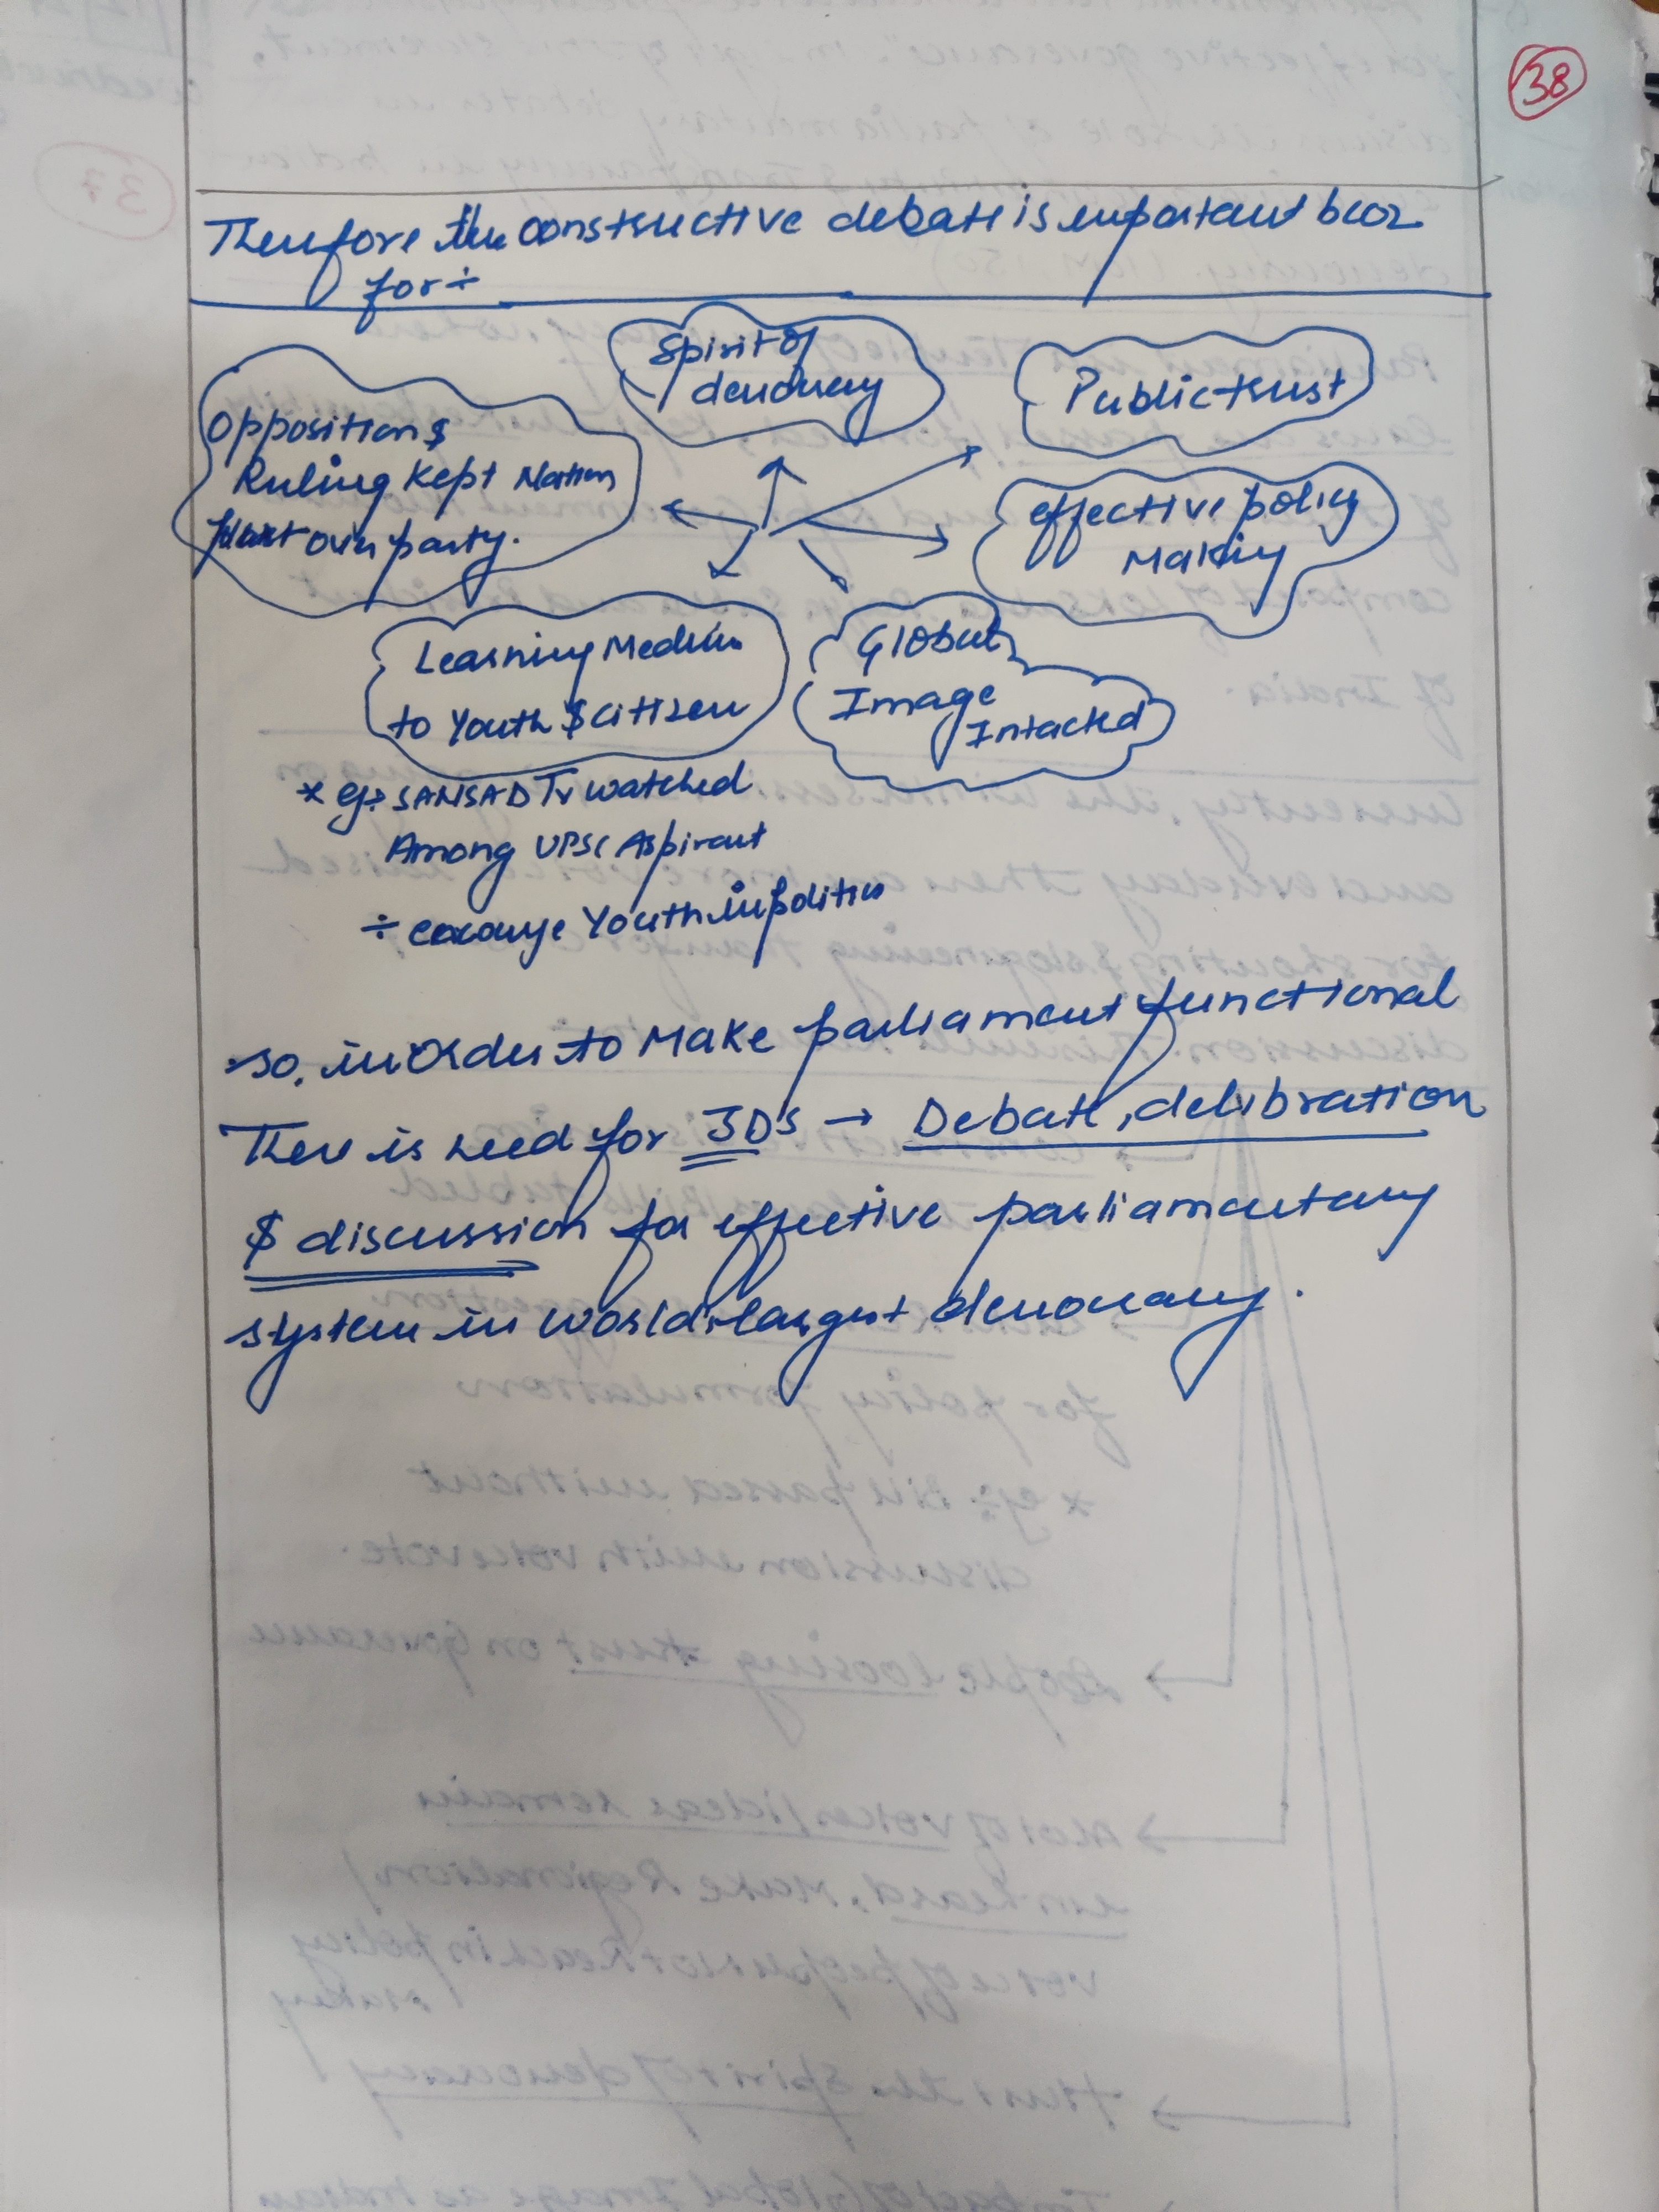 38
Therefore the constructive debate is important bcoz
for ÷
Spirit of
democracy
Public trust
Opposition &
Ruling Kept Nation
over party.
effective policy
Making
Learning Medium
to Youth & citizen
Global
Image
Intacted
* eg:- SANSAD TV watched
Among UPSC Aspirant
÷ encourage Youth in politics
So, in order to Make parliament functional
There is need for 3D's → Debate, delibration
& discussion for effective parliamentary
system in world's largest democracy.